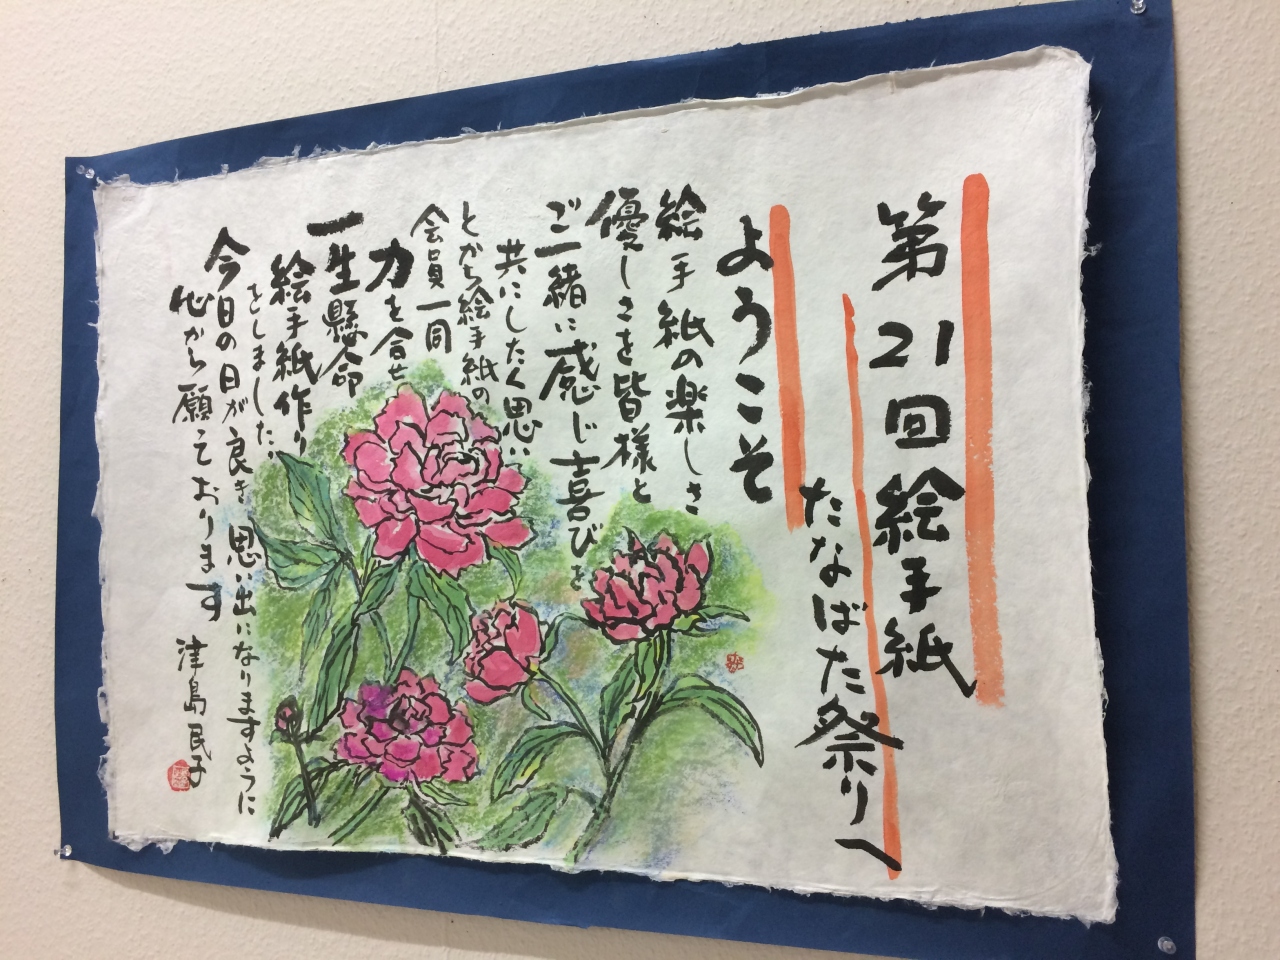 第21回絵手紙
たなばた祭りへ
ようこそ
絵手紙の楽しさ
優しさを皆様と
ご一緒に感じ喜びを
共にしたく思い
とから絵手紙の
会員一同
力を合せ
一生懸命
絵手紙作り
をしました。
今日の日が良き思い出になりますように
心から願っております
津島民子